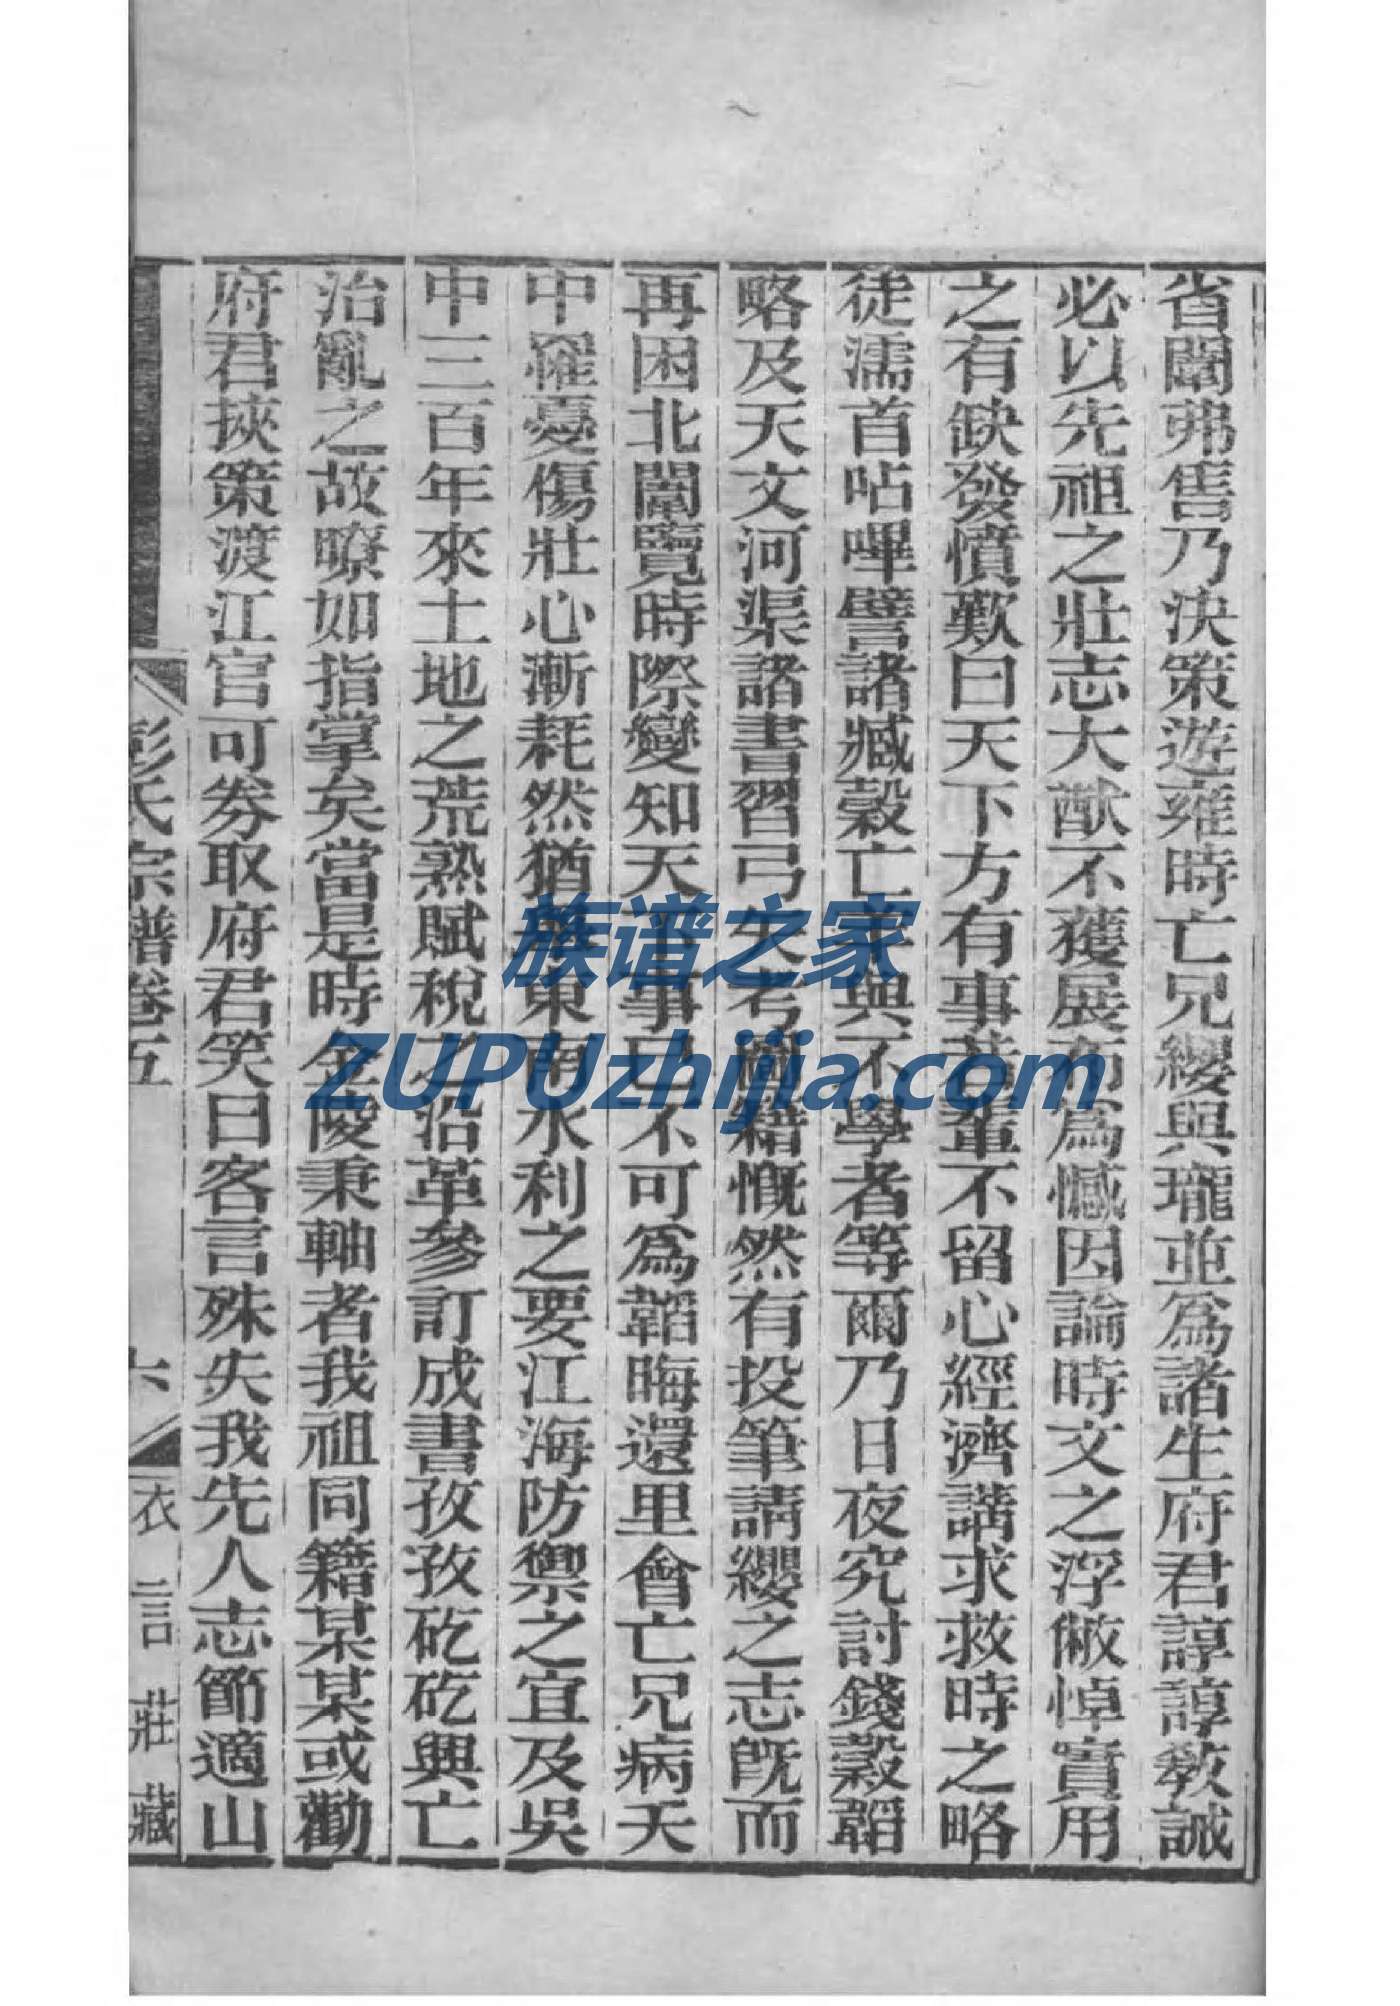 省闈弗售乃決策遊雍時亡兄纓與瓏並爲諸生府君諄諄教誡
必以先祖之壯志大猷不獲展布爲憾因論時文之浮敝悼實用
之有缺發憤歎曰天下方有事若輩不留心經濟講求救時之略
徒濡首呫嗶譬諸臧穀亡羊與不學者等爾乃日夜究討錢穀韜
略及天文河渠諸書習弓矢考圖籍慨然有投筆請纓之志旣而
再困北闈覽時際變知天下事已不可爲韜晦還里會亡兄病夭
中罹憂傷壯心漸耗然猶與東南水利之要江海防禦之宜及吳
中三百年來土地之荒熟賦稅之沿革參訂成書孜孜矻矻興亡
治亂之故瞭如指掌矣當是時金陵秉軸者我祖同籍某某或勸
府君挾策渡江官可劵取府君笑曰客言殊失我先人志節適山
彭氏宗譜卷五
六
衣言莊藏
族谱之家
ZUPUzhijia.com